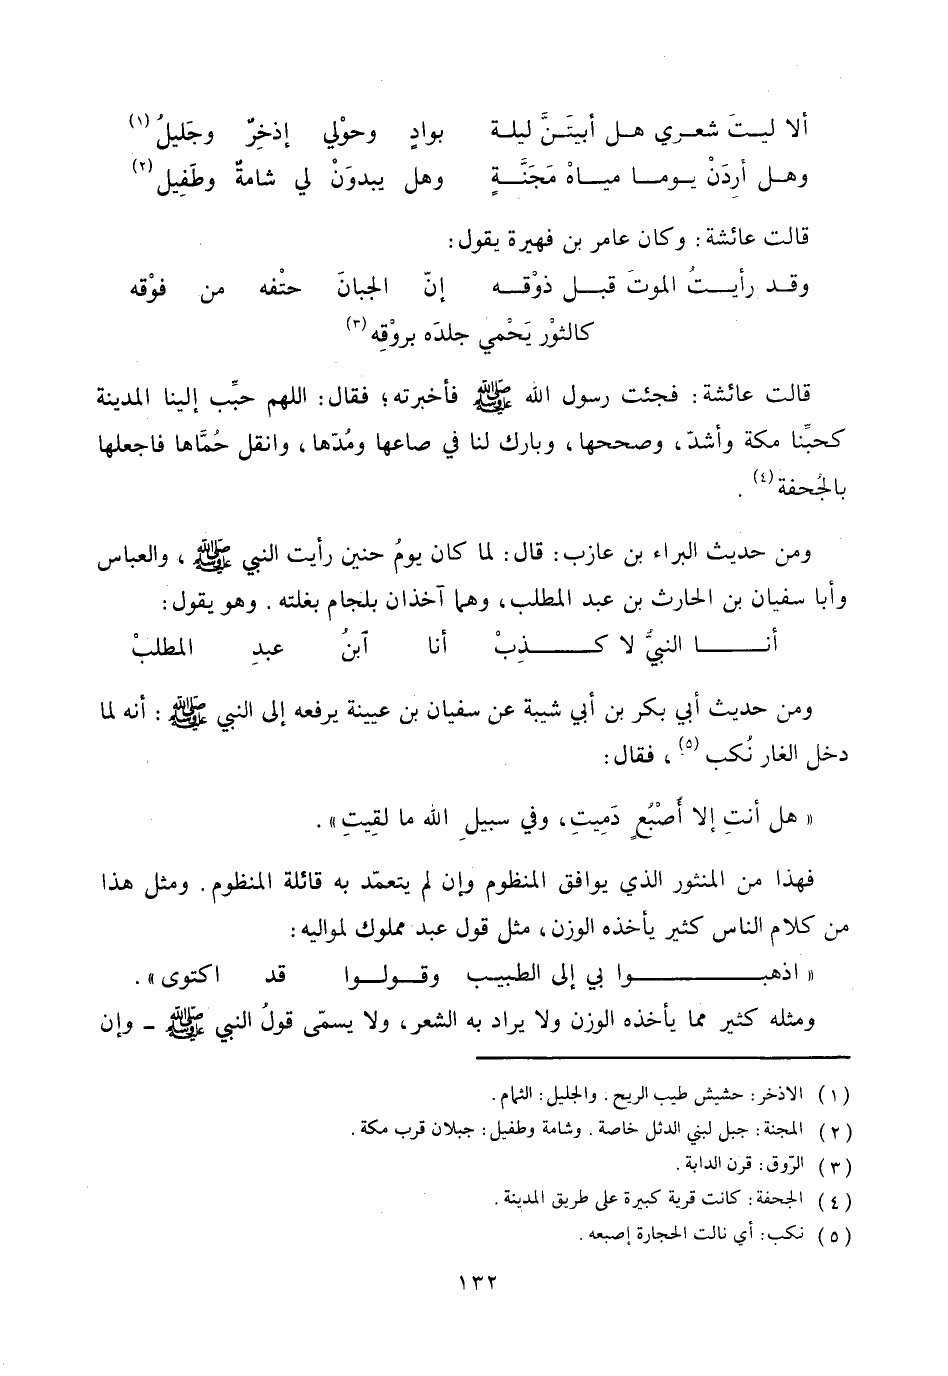 ألا ليتَ شعري هل أبيتَنَّ ليلة بوادٍ وحوْلي إذخِرٌ وجَليلُ (١)
وهل أرِدَنْ يوما مياهْ مَجَنَّةٍ وهل يبدوَنْ لي شامةٌ وطَفِيل (٢)
قالت عائشة: وكان عامر بن فهيرة يقول:
وقد رأيتُ الموتَ قبل ذوْقه إنّ الجبانَ حتْفه من فوْقه
كالثوْر يَحْمي جلدَه بروْقِه (٣)
قالت عائشة: فجئت رسول الله ﷺ فأخبرته؛ فقال: اللهم حبِّب إلينا المدينة
كحبِّنا مكة وأشدّ، وصححها، وبارك لنا في صاعها ومُدّها، وانقل حُمَّاها فاجعلها
بالجُحفة (٤) .
ومن حديث البراء بن عازب: قال: لما كان يومُ حنين رأيت النبي ﷺ، والعباس
وأبا سفيان بن الحارث بن عبد المطلب، وهما آخذان بلجام بغلته. وهو يقول:
أنا النبيُّ لا كذِبْ أنا ٱبنُ عبدِ المطلبْ
ومن حديث أبي بكر بن أبي شيبة عن سفيان بن عيينة يرفعه إلى النبي ﷺ: أنه لما
دخل الغار نُكب (٥)، فقال:
« هل أنتِ إلا أَصْبُعٍ دَمِيتِ، وفي سبيلِ الله ما لقِيتِ».
فهذا من المنثور الذي يوافق المنظوم وإن لم يتعمّد به قائلة المنظوم. ومثل هذا
من كلام الناس كثير يأخذه الوزن، مثل قول عبد مملوك لمواليه:
« اذهبوا بي إلى الطبيب وقولوا قد اكتوى».
ومثله كثير مما يأخذه الوزن ولا يراد به الشعر، ولا يسمّى قولُ النبي ﷺ ــ وإن
(١) الاذخر: حشيش طيب الريح. والجليل: الثمام.
(٢) المجنة: جبل لبني الدئل خاصة. وشامة وطفيل: جبلان قرب مكة.
(٣) الرّوق: قرن الدابة.
(٤) الجحفة: كانت قرية كبيرة على طريق المدينة.
(٥) نكب: أي نالت الحجارة إصبعه.
١٣٢